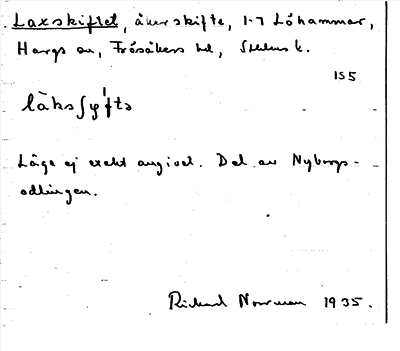 Laxskiftet, åkerskifte, 1-7 Löhammar,
Hargs sn, Frösåkers hd, Sthlms l.
155
Läge ej exakt angivet. Del av Nyborgs-
odlingen.
Rickard Norrman 1935.